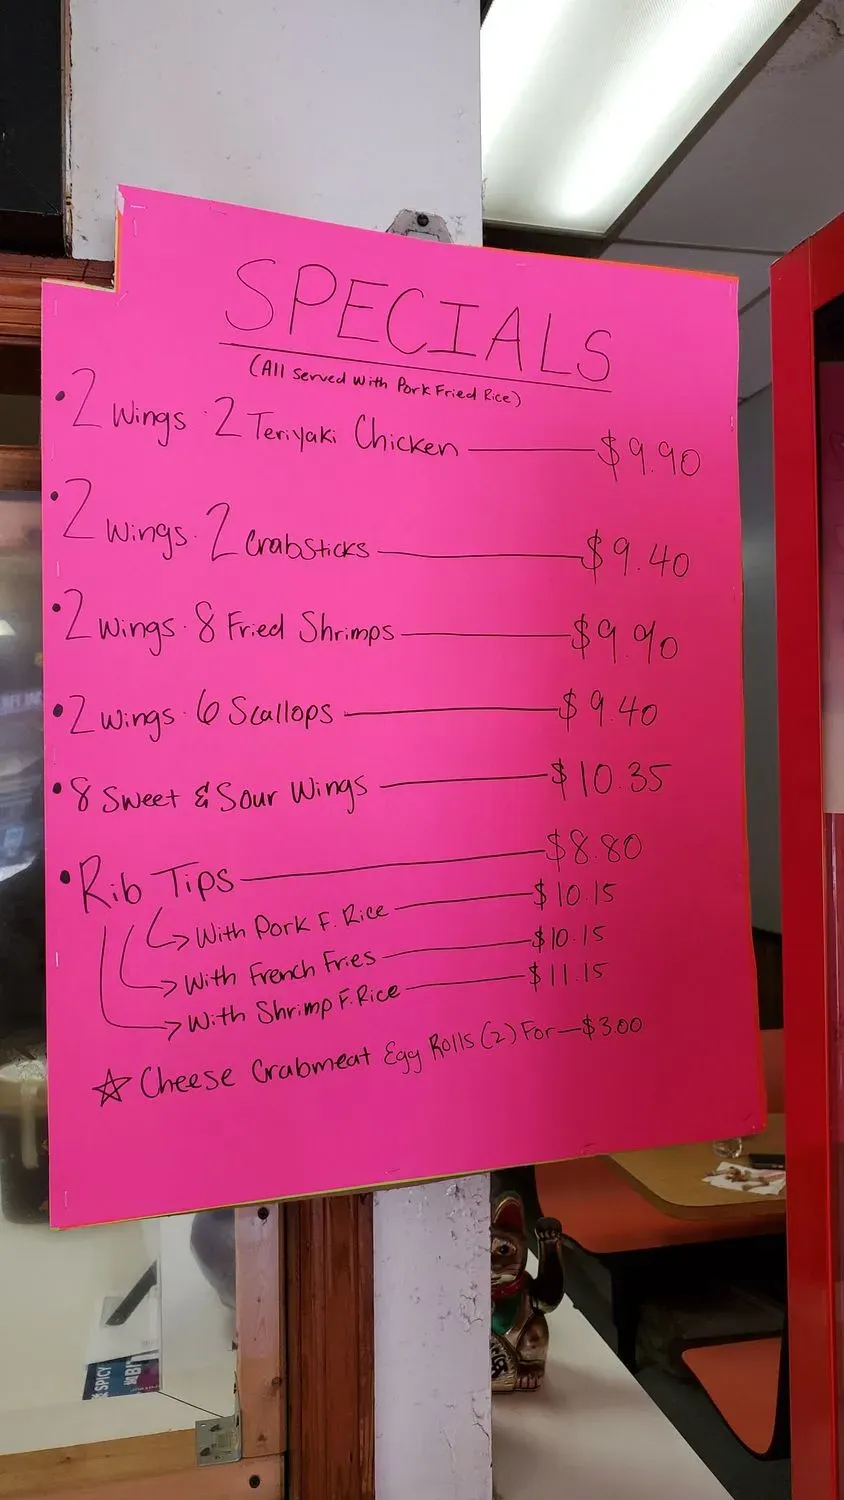 SPECIALS
(All Served with Pork Fried Rice)
• 2 Wings · 2 Teriyaki Chicken — $9.90
• 2 Wings · 2 Crabsticks — $9.40
• 2 Wings · 8 Fried Shrimps — $9.90
• 2 Wings · 6 Scallops — $9.40
• 8 Sweet & Sour Wings — $10.35
• Rib Tips — $8.80
→ With Pork F. Rice — $10.15
→ With French Fries — $10.15
→ With Shrimp F. Rice — $11.15
☆ Cheese Crabmeat Egg Rolls (2) For — $3.00
SPICY